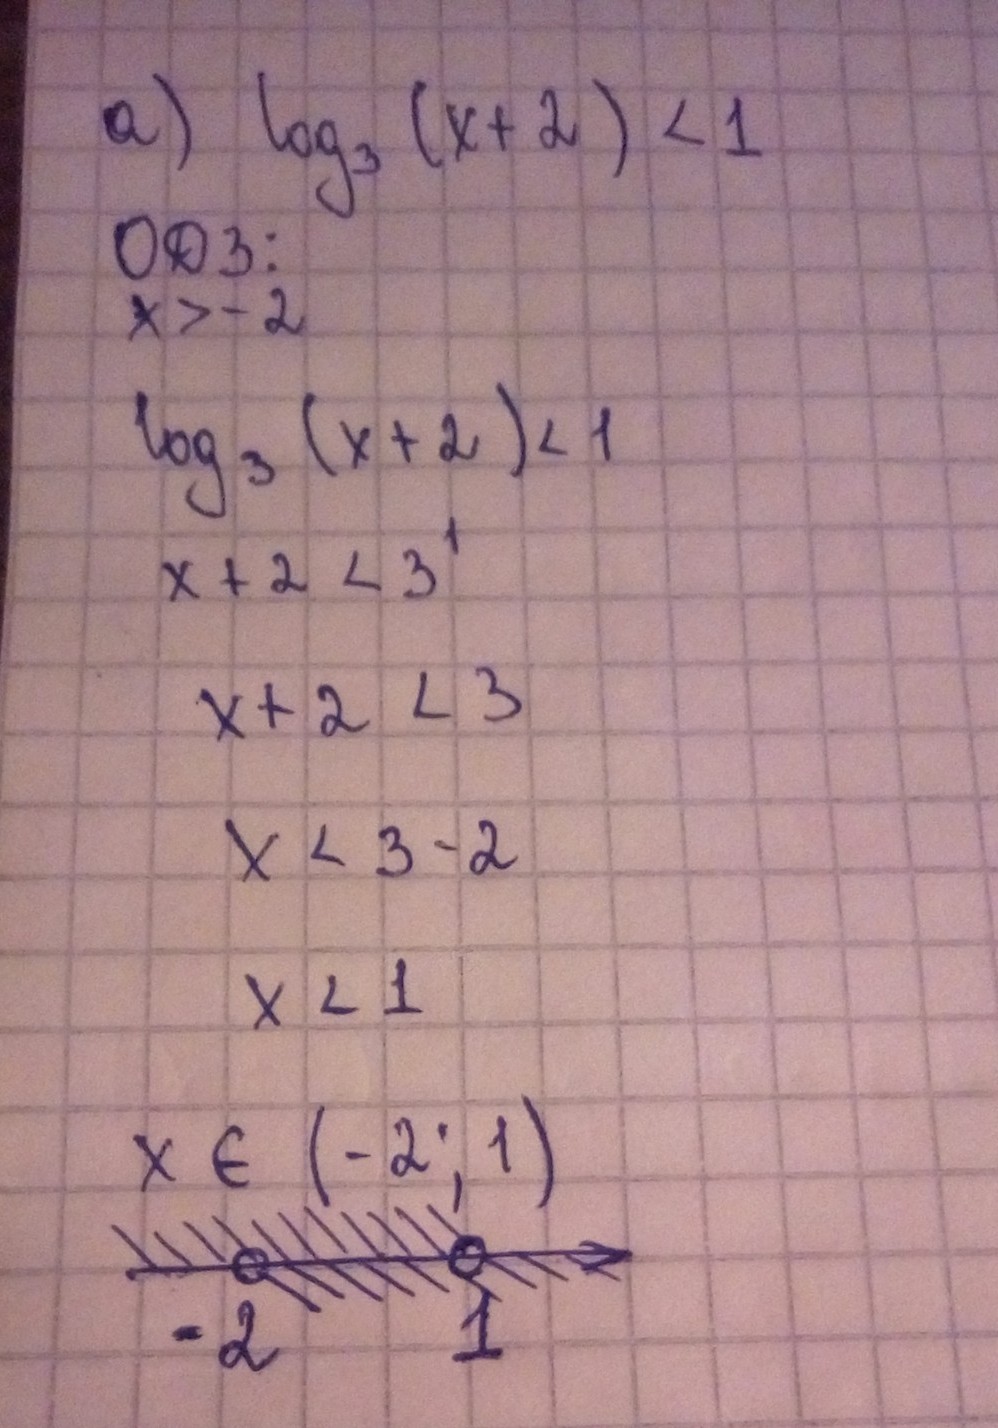 а) log₃ (x + 2) < 1
ОДЗ:
x > -2
log₃ (x + 2) < 1
x + 2 < 3¹
x + 2 < 3
x < 3 - 2
x < 1
x ∈ (-2; 1)
-2 1